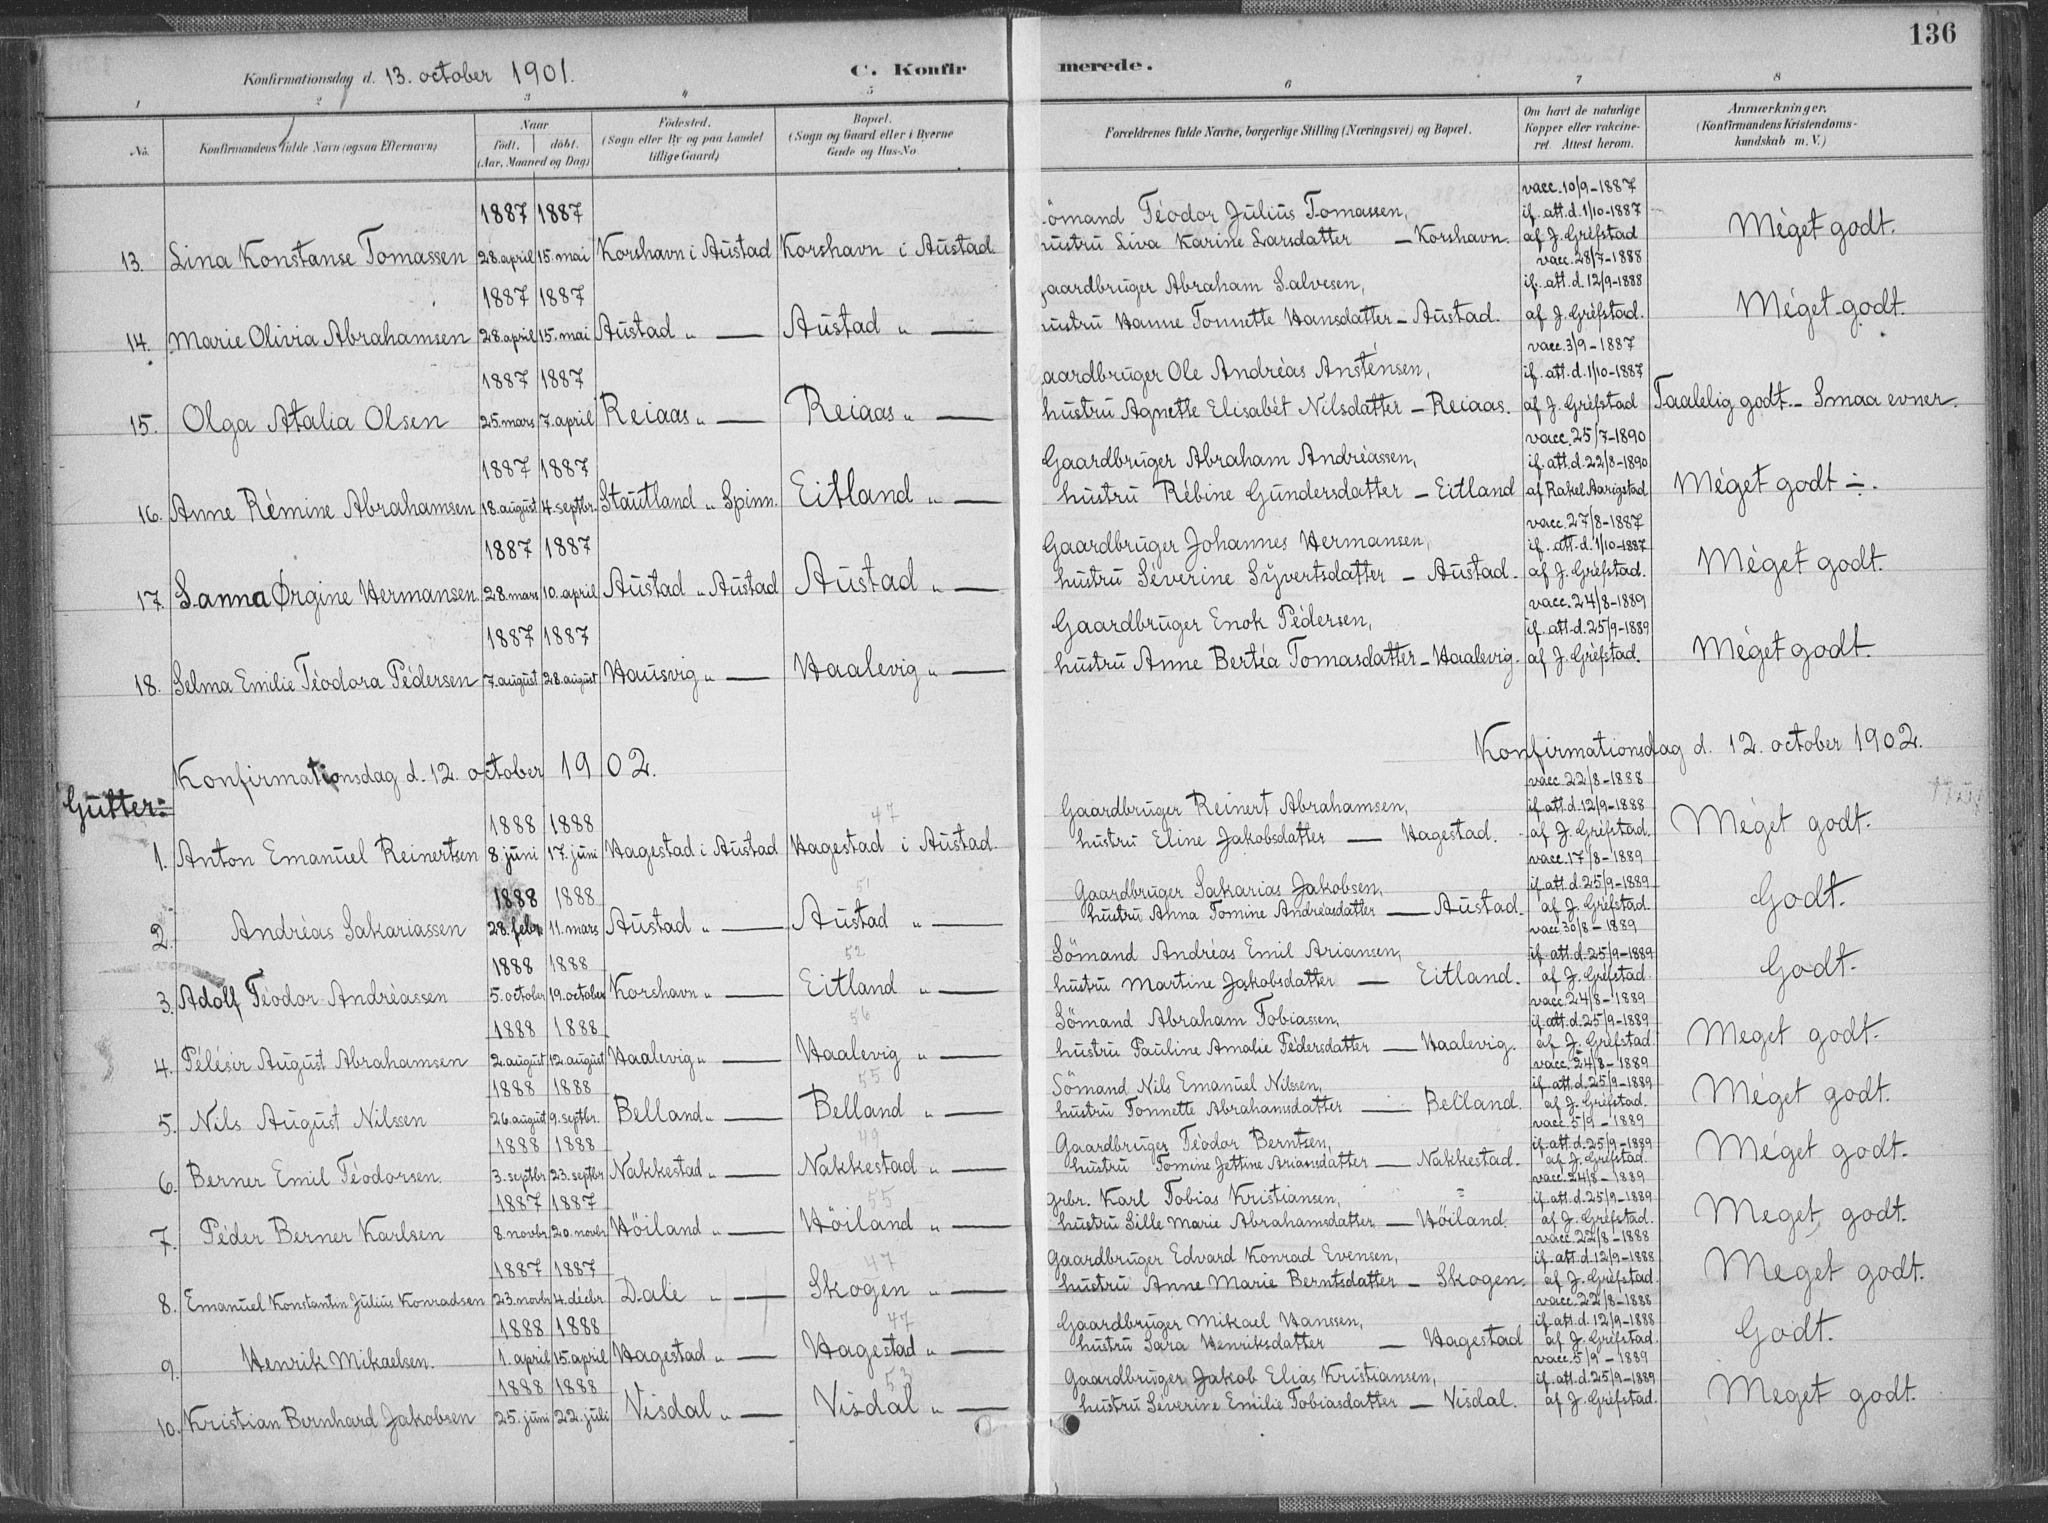 136
Konfirmationsdag d. 13. october 1901.
C. Konfirmerede.
1 2 3 4 5 6 7 8
No. Konfirmandens fulde Navn (ogsaa Efternavn) Naar født. døbt. (Aar, Maaned og Dag) Fødested. (Sogn eller By og paa Landet tillige Gaard) Bopæl. (Sogn og Gaard eller i Byerne Gade og Hus-No. Forældrenes fulde Navne, borgerlige Stilling (Næringsvei) og Bopæl. Om havt de naturlige Kopper eller vakcineret. Attest herom. Anmærkninger. (Konfirmandens Kristendomskundskab m. V.)
1887 1887 Sömand Téodor Julius Tomassen, vacc. 10/9-1887 if. att. d. 1/10-1887
13. Lina Konstanse Tomassen 28. april 15. mai Korshavn i Austad Korshavn i Austad. hustru Liva Karine Larsdatter — Korshavn. af J. Gréfstad Méget godt.
1887 1887 Gaardbruger Abraham Salvesen, vacc. 28/7-1888 if. att. d. 12/9-1888
14. Marie Olivia Abrahamsen 28. april 15. mai Austad „ — Austad „ — hustru Hanne Tonnette Hansdatter — Austad. af J. Gréfstad. Méget godt.
1887 1887 Gaardbruger Ole Andréas Ansténsen, vacc. 3/9-1887 if. att. d. 1/10-1887
15. Olga Atalia Olsen 25. mars 7. april Reiaas „ — Reiaas „ — hustru Agnette Elisabét Nilsdatter — Reiaas. af J. Gréfstad Taalelig godt. - Smaa evner.
1887 1887 Gaardbruger Abraham Andréassen, vacc. 25/7-1890 if. att. d. 22/8-1890
16. Anne Rémine Abrahamsen 18. august 4. septbr. Stautland „ Spinn. Eitland „ — hustru Rébine Gundersdatter — Eitland af Rakel Aarigstad Méget godt ÷.
1887 1887 Gaardbruger Johannes Hermansen, vacc. 27/8-1887 if. att. d. 1/10-1887
17. Sanna Ørgine Hermansen. 28. mars 10. april Austad „ Austad Austad „ — hustru Séverine Syvertsdatter — Austad. af J. Gréfstad. Méget godt.
1887 1887 Gaardbruger Enok Pédersen, vacc. 24/8-1889 if. att. d. 25/9-1889
18. Selma Emilie Téodora Pédersen 7. august 28. august Hausvig „ — Haalevig „ — hustru Anne Bertéa Tomasdatter — Haalevig. af J. Gréfstad. Méget godt.
Konfirmationsdag d. 12. october 1902. Konfirmationsdag d. 12. october 1902.
Gutter:
1888 1888 47 Gaardbruger Reinert Abrahamsen, vacc. 22/8-1888 if. att. d. 12/9-1888
1. Anton Emanuel Reinertsen 8. juni 17. juni Hagestad i Austad Hagestad i Austad. hustru Eline Jakobsdatter — Hagestad. af J. Gréfstad. Méget godt.
1888 1888 51 Gaardbruger Sakarias Jakobsen, vacc. 17/8-1889 if. att. d. 25/9-1889
2. Andréas Sakariassen 28. febr. 11. mars Austad „ — Austad „ — hustru Anna Tomine Andréasdatter — Austad. af J. Gréfstad. Godt.
1888 1888 52 Sömand Andréas Emil Ariansen, vacc. 30/8-1889 if. att. d. 25/9-1889
3. Adolf Téodor Andréassen 5. october 19. october Korshavn „ — Eitland „ — hustru Martine Jakobsdatter — Eitland. af J. Gréfstad. Godt.
1888 1888 56 Sömand Abraham Tobiassen, vacc. 24/8-1889 if. att. d. 25/9-1889
4. Pélésir August Abrahamsen 2. august 12. august Haalevig „ — Haalevig „ — hustru Pauline Amalie Pédersdatter — Haalevig. af J. Gréfstad. Meget godt.
1888 1888 55 Sömand Nils Emanuel Nilssen, vacc. 24/8-1889 if. att. d. 25/9-1889
5. Nils August Nilssen 26. august 9. septbr. Belland „ — Belland „ — hustru Tonnette Abrahamsdatter — Belland. af J. Gréfstad. Méget godt.
1888 1888 49 Gaardbruger Téodor Berntsen, vacc. 5/9-1889 if. att. d. 25/9-1889
6. Berner Emil Téodorsen. 3. septbr 23. septbr Nakkestad „ — Nakkestad „ — hustru Tomine Jettine Ariansdatter — Nakkestad. af J. Gréfstad. Méget godt.
1887 1887 55 grbr. Karl Tobias Kristiansen, vacc. 24/8-1889 if. att. d. 25/9-1889
7. Péder Berner Karlsen 8. novbr 20. novbr Höiland „ — Höiland „ — hustru Sille Marie Abrahamsdatter — Höiland. af J. Gréfstad. Meget godt.
1887 1887 47 Gaardbruger Edvard Konrad Evensen, vacc. 22/8-1888 if. att. d. 12/9-1888
8. Emanuel Konstantin Julius Konradsen 23. novbr 4. décbr Dale „ — Skogen „ — hustru Anne Marie Berntsdatter — Skogen. af J. Gréfstad. Meget godt.
1888 1888 47 Gaardbruger Mikael Hanssen, vacc. 22/8-1888 if. att. d. 12/9-1888
9. Henrik Mikaelsen. 1. april 15. april Hagestad „ — Hagestad „ — hustru Sara Henriksdatter — Hagestad af J. Gréfstad. Godt.
1888 1888 53 Gaardbruger Jakob Elias Kristiansen, vacc. 5/9-1889 if. att. d. 25/9-1889
10. Kristian Bernhard Jakobsen 25. juni 22. juli Visdal „ — Visdal „ — hustru Séverine Emélie Tobiasdatter — Visdal. af J. Gréfstad. Meget godt.